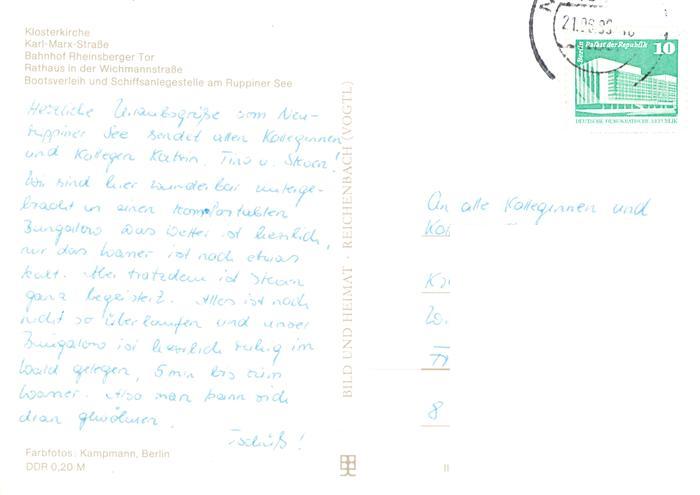 Klosterkirche
Karl-Marx-Straße
Bahnhof Rheinsberger Tor
Rathaus in der Wichmannstraße
Bootsverleih und Schiffsanlegestelle am Ruppiner See
Herzliche Urlaubsgrüße vom Neu-
ruppiner See sendet allen Kolleginnen
und Kollegen Katrin, Tino u. Steven!
Wir sind hier wunderbar unterge-
bracht in einen komfortablen
Bungalow. Das Wetter ist herrlich,
nur das Wasser ist noch etwas
kalt. Aber trotzdem ist Steven
ganz begeistert. Alles ist noch
nicht so überlaufen und unser
Bungalow ist herrlich ruhig im
Wald gelegen, 5 min bis zum
Wasser. Also man kann sich
dran gewöhnen.
Tschüß!
Farbfotos: Kampmann, Berlin
DDR 0,20 M
BILD UND HEIMAT · REICHENBACH (VOGTL)
Berlin Palast der Republik 10
DEUTSCHE DEMOKRATISCHE REPUBLIK
An alle Kolleginnen und
8